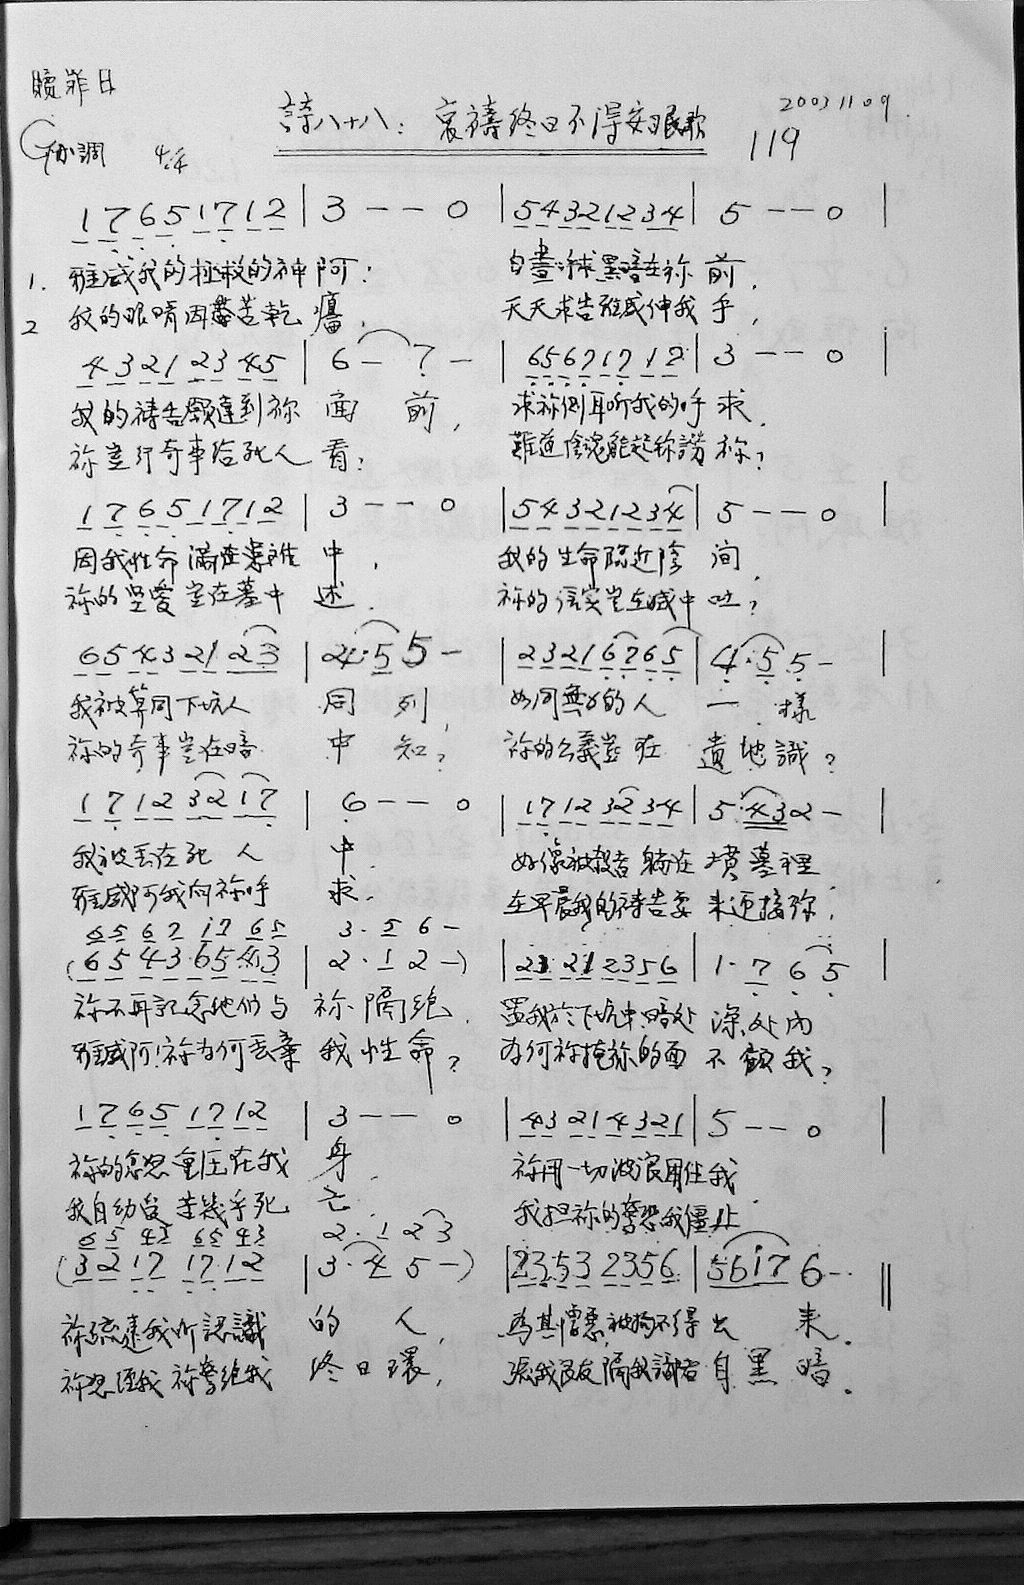 贖罪日
詩八十八：哀禱終日不得安眠歌 2003 11 09
G 小調 4/4 119
1 7 6 5 1 7 1 2 | 3 - - 0 | 5 4 3 2 1 2 3 4 | 5 - - 0 |
1. 雅威我的拯救的神阿： 白晝 求 黑暗在祢前，
2 我的眼睛因 苦乾癟， 天天求告雅威伸我手，
4 3 2 1 2 3 4 5 | 6 - 7 - | 6 5 6 7 1 7 1 2 | 3 - - 0 |
我的禱告願達到祢面前， 求祢側耳听我的呼求．
祢豈行奇事给死人看？ 難道陰魂能起称讚祢？
1 7 6 5 1 7 1 2 | 3 - - 0 | 5 4 3 2 1 2 3 4 | 5 - - 0 |
因我性命滿 中， 我的生命臨近陰间，
祢的 愛豈在墓中述． 祢的信实豈在 中吐？
6 5 4 3 2 1 2 3 | 2 4· 5 5 - | 2 3 2 1 6 7 6 5 | 4· 5 5 -
我被算同下坑人同列， 如同無 的人一樣
祢的奇事豈在暗中知？ 祢的公義豈在遺地識？
1 7 1 2 3 2 1 7 | 6 - - 0 | 1 7 1 2 3 2 3 4 | 5· 4 3 2 - |
我被丟在死人中． 好像被殺 躺在墳墓裡
雅威阿我向祢呼求． 在早晨我的禱告要来迎接祢．
6 5 6 7 1 7 6 5 3· 5 6 -
(6 5 4 3 6 5 4 3 | 2· 1 2 -) | 2 3 2 1 2 3 5 6 | 1· 7 6 5 |
祢不再記念他们与祢隔絶． 置我於下坑中暗处深处内
雅威阿！祢为何丢棄我性命？ 为何祢掩祢的面不顧我？
1 7 6 5 1 7 1 2 | 3 - - 0 | 4 3 2 1 4 3 2 1 | 5 - - 0 |
祢的忿怒重压在我身． 祢用一切波浪困住我
我自幼受苦幾乎死亡． 我担祢的驚恐我僵止
6 5 4 3 6 5 4 3 2· 1 2 3
(3 2 1 7 1 7 1 2 | 3· 4 5 -) | 2 3 5 3 2 3 5 6 | 5 6 1 7 6 - · ||
祢疏遠我所認識的人， 為其憎惡被拘不得出来．
祢怒压我祢驚絶我终日環， 我良友隔我 自黑暗．